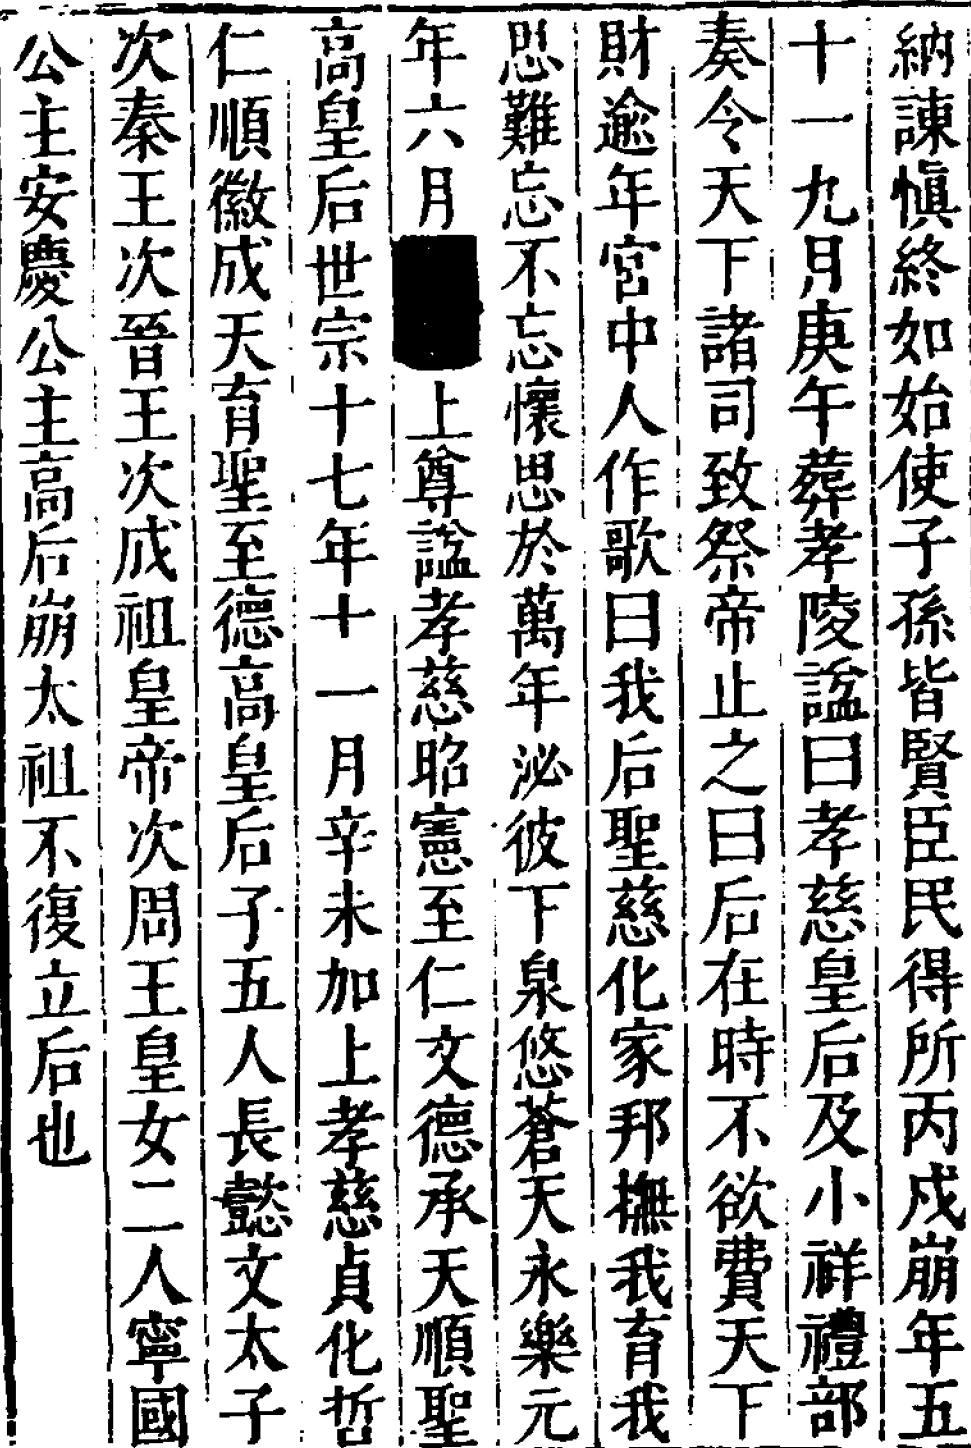 納諫慎終如始使子孫皆賢臣民得所丙戍崩年五
十一九月庚午葬孝陵謚曰孝慈皇后及小祥禮部
奏令天下諸司致祭帝止之曰后在時不欲費天下
財逾年宮中人作歌曰我后聖慈化家邦撫我育我
思難忘忘不忘懷思於萬年泌彼下泉悠蒼天永樂元
年六月上尊謚孝慈昭憲至仁文德承天順聖
高皇后世宗十七年十一月辛未加上孝慈貞化哲
仁順徽成天育聖至德高皇后子五人長懿文太子
次秦王次晉王次成祖皇帝次周王皇女二人寧國
公主安慶公主高后崩太祖不復立后也